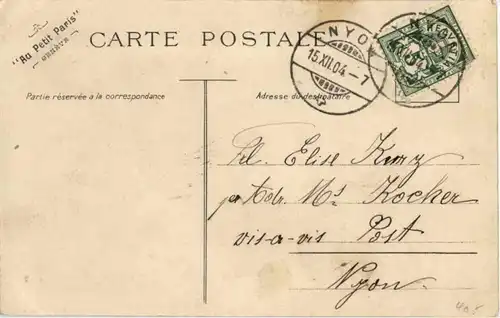 "Au Petit Paris"
GENÈVE
CARTE POSTALE
NYON
15.XII.04.-7
Partie réservée à la correspondance
Adresse du destinataire
Frl. Elise Kurz
pr Adr. Mr. Kocher
vis-a-vis Post
Nyon.